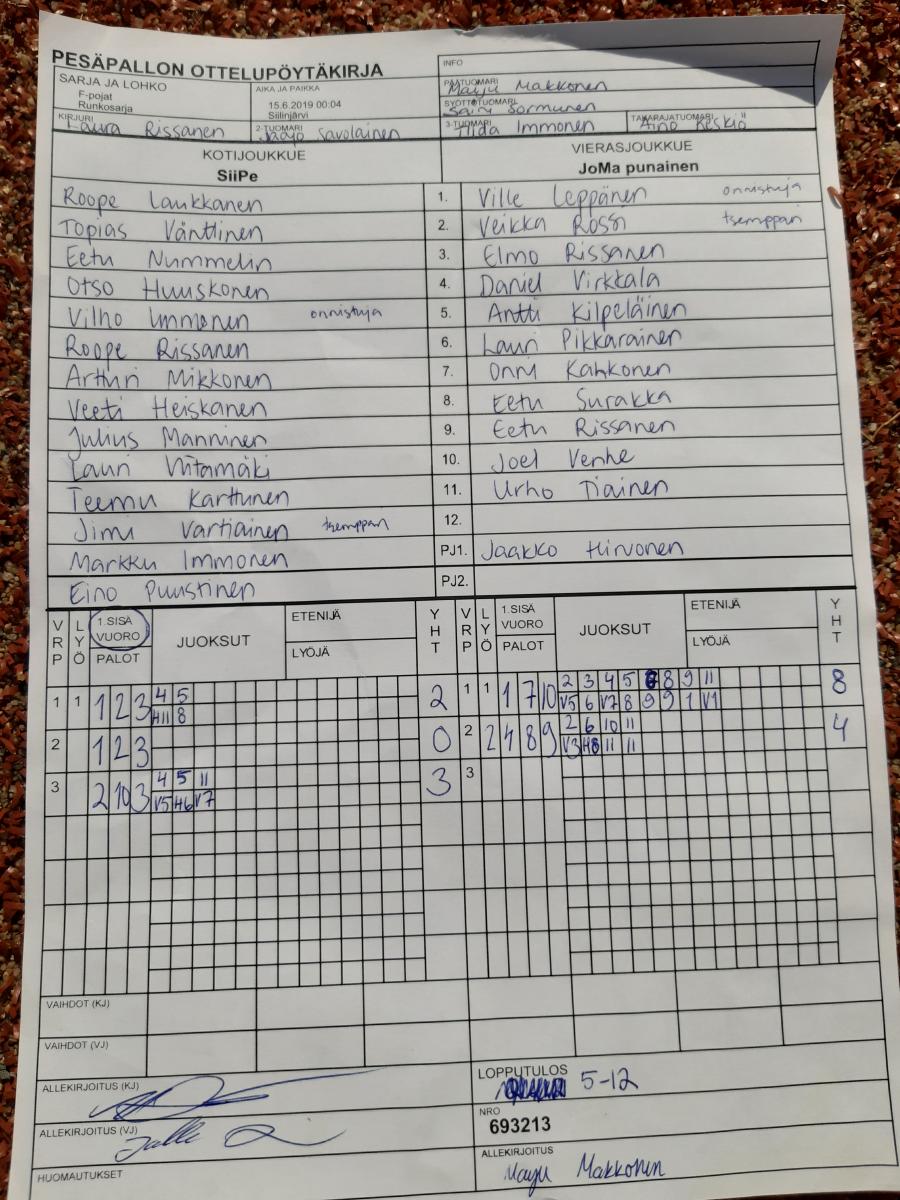 PESÄPALLON OTTELUPÖYTÄKIRJA
INFO
SARJA JA LOHKO
F-pojat
Runkosarja
AIKA JA PAIKKA
15.6.2019 00:04
Siilinjärvi
PÄÄTUOMARI
Maiju Makkonen
SYÖTTÖTUOMARI
Sormunen
KIRJURI
Laura Rissanen
2-TUOMARI
Savolainen
3-TUOMARI
Iida Immonen
TAKARAJATUOMARI
Aino
KOTIJOUKKUE
SiiPe
VIERASJOUKKUE
JoMa punainen
Roope Laukkanen 1. Ville Leppänen onnistuja
Topias Vänttinen 2. Veikka Rossi tsemppari
Eetu Nummelin 3. Elmo Rissanen
Otso Huuskonen 4. Daniel Virkkala
Vilho Immonen onnistuja 5. Antti Kilpeläinen
Roope Rissanen 6. Lauri Pikkarainen
Artturi Mikkonen 7. Onni Kahkonen
Veeti Heiskanen 8. Eetu Surakka
Julius Manninen 9. Eetu Rissanen
Lauri Viitamäki 10. Joel Venhe
Teemu Karttunen 11. Urho Tiainen
Jimi Vartiainen tsemppari 12.
Markku Immonen PJ1. Jaakko Hirvonen
Eino Puustinen PJ2.
VRP LYÖ 1.SISÄ VUORO PALOT JUOKSUT ETENIJÄ LYÖJÄ YHT VRP LYÖ 1.SISÄ VUORO PALOT JUOKSUT ETENIJÄ LYÖJÄ YHT
1 1 1 2 3 4 5 2 1 1 1 7 10 2 3 4 5 8 9 11 8
H11 8 V5 6 V7 8 9 9 1 V1
2 1 2 3 0 2 2 4 8 9 2 6 10 11 4
V3 H8 11 11
3 2 10 3 4 5 11 3 3
V5 H6 V7
VAIHDOT (KJ)
VAIHDOT (VJ)
ALLEKIRJOITUS (KJ)
LOPPUTULOS
5-12
ALLEKIRJOITUS (VJ)
NRO
693213
HUOMAUTUKSET
ALLEKIRJOITUS
Maiju Makkonen